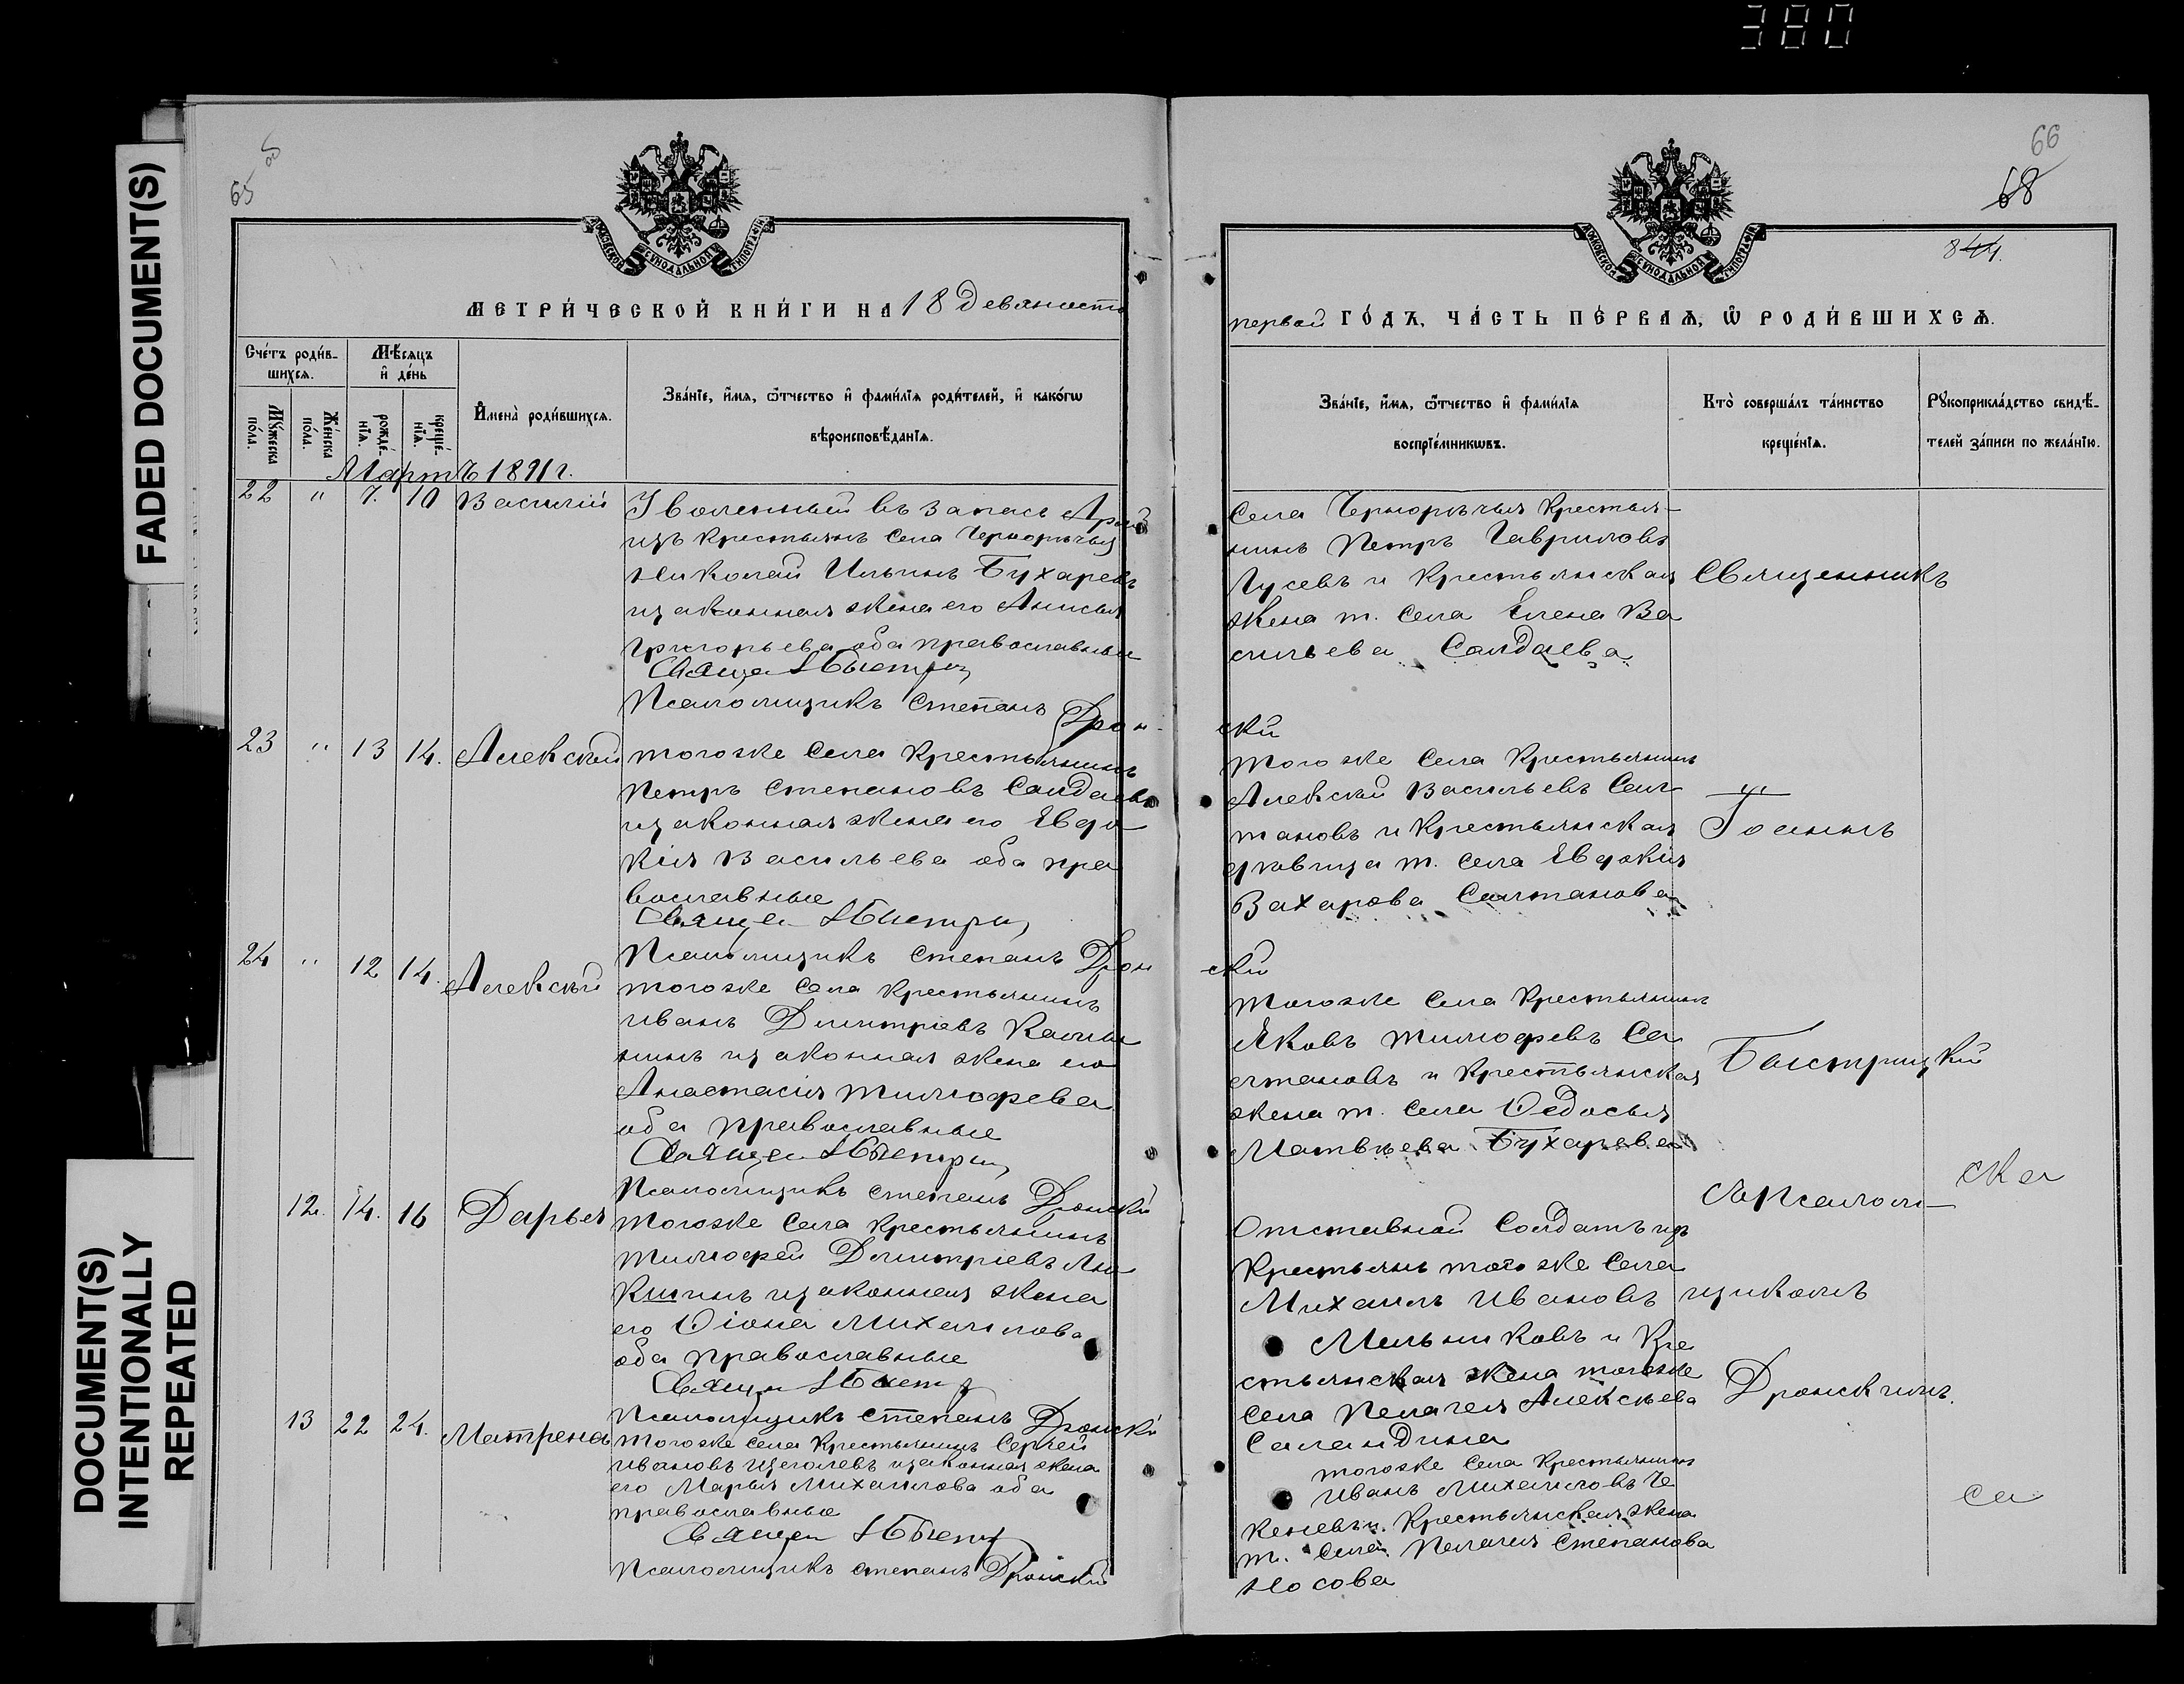 380
FADED DOCUMENT(S)
DOCUMENT(S)
INTENTIONALLY
REPEATED
65 об
МЕТРИ́ЧЕСКОЙ КНИ́ГИ НА 18 девяносто
Сче́тъ роди́в-
шихсѧ.
Мѣ́сяцъ
и҆ де́нь
Мꙋ́жеска
по́ла.
Же́нска
по́ла.
рожде́-
нїѧ.
креще́-
нїѧ.
И҆мена̀ роди́вшихсѧ.
Зва́нїе, и҆́мѧ, ѻ҆́тчество и҆ фами́лїѧ роди́телей, и҆ како́гѡ
вѣроисповѣ́данїѧ.
Мартъ 1891 г.
22 " 7. 10 Василій
Уволенный въ запасъ
изъ крестьянъ села Черноречья
Николай Ильинъ Бухаревъ
и законная жена его Анисья
Григорьева оба православные
Псаломщикъ Степанъ Дрон-
23 " 13 14. Алексѣй
тогоже села крестьянинъ
Петръ Степановъ Салдаевъ
и законная жена его Евдо
кія Васильева оба пра
вославные
Псаломщикъ Степанъ Дрон
24 " 12 14. Алексѣй
тогоже села крестьянинъ
Иванъ Димитріевъ
и законная жена его
Анастасія Тимофеева
оба православные
Псаломщикъ Степанъ Дронскій
12. 14. 16 Дарья
тогоже села крестьянинъ
Тимофей Димитріевъ Ан
кшинъ и законная жена
его Ѳіона Михаилова
оба православные
Псаломщикъ Степанъ Дронскій
13 22 24. Матрена
тогоже села крестьянинъ Сергей
Ивановъ Щеголевъ и законная жена
его Марья Михаилова оба
православные
Псаломщикъ Степанъ Дронский
66
68
844.
первый ГО́ДЪ, ЧА́СТЬ ПЕ́РВАѦ, Ѡ҆ РОДИ́ВШИХСѦ.
Зва́нїе, и҆́мѧ, ѻ҆́тчество и҆ фами́лїѧ
воспрїе́мникѡвъ.
Кто̀ соверша́лъ та́инство
креще́нїѧ.
Рꙋкоприкла́дство свидѣ́-
телей за́писи по жела́нїю.
Села Чернорѣчья крестья-
нинъ Петръ Гавриловъ
Гусевъ и крестьянская
жена т. села Елена Ва
сильева Салдаева
ский
тогоже села крестьянинъ
Алексѣй Васильевъ Сал
тановъ и крестьянская
дѣвица т. села Евдокія
Захарова Салтанова
ский
тогоже села крестьянинъ
Яковъ Тимофеевъ Са
лтановъ и крестьянская
жена т. села Ѳедосья
Матвѣева Бухарева
Отставной солдатъ изъ
крестьянъ того же села
Михаилъ Ивановъ
Мельниковъ и кре
стьянская жена тогоже
села Пелагея Алексѣева
Саландина
тогоже села крестьянинъ
Иванъ Михаиловъ Че
кеневъ и крестьянская жена
т. села Пелагия Степанова
Носова
Священникъ
Іоаннъ
Быстрицкій
съ Псалом-
щикомъ
Дронскимъ.